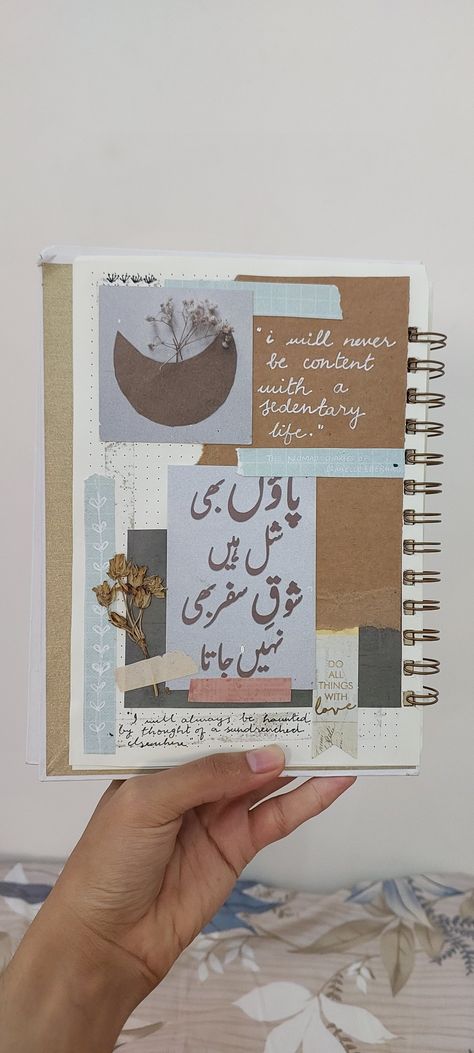 "i will never
be content
with a
sedentary
life."
THE NOMAD DIARIES OF
پاؤں بھی
شل ہیں
شوقِ سفر بھی
نہیں جاتا
DO
ALL
THINGS
WITH
love
"I will always be haunted
by thought of a sundrenched
elsewhere"